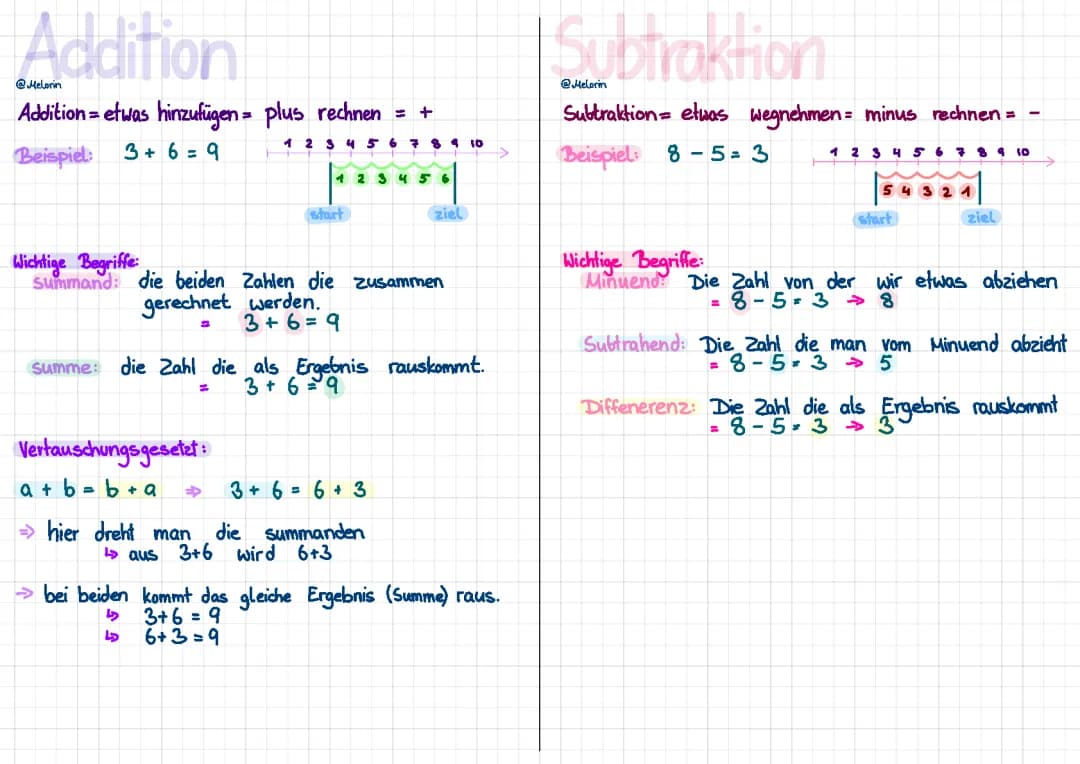 Addition
@Melorin
Addition = etwas hinzufügen = plus rechnen = +
Beispiel: 3 + 6 = 9
1 2 3 4 5 6 7 8 9 10
1 2 3 4 5 6
start ziel
Wichtige Begriffe:
summand: die beiden Zahlen die zusammen
gerechnet werden.
= 3 + 6 = 9
summe: die Zahl die als Ergebnis rauskommt.
= 3 + 6 = 9
Vertauschungsgesetzt:
a + b = b + a ⇒ 3 + 6 = 6 + 3
⇒ hier dreht man die summanden
↳ aus 3+6 wird 6+3
→ bei beiden kommt das gleiche Ergebnis (Summe) raus.
↳ 3+6 = 9
↳ 6+3 = 9
Subtraktion
@Melorin
Subtraktion = etwas wegnehmen = minus rechnen = -
Beispiel: 8 - 5 = 3
1 2 3 4 5 6 7 8 9 10
5 4 3 2 1
start ziel
Wichtige Begriffe:
Minuend: Die Zahl von der wir etwas abziehen
= 8 - 5 = 3 → 8
Subtrahend: Die Zahl die man vom Minuend abzieht
= 8 - 5 = 3 → 5
Differenerenz: Die Zahl die als Ergebnis rauskommt
= 8 - 5 = 3 → 3